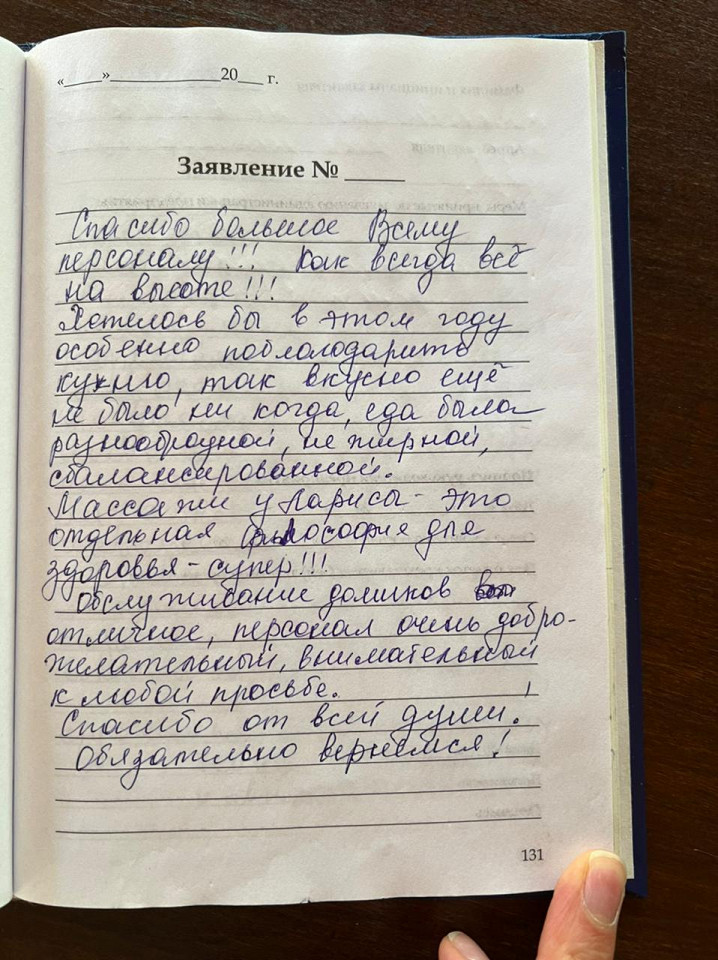 «____»______________20___ г.
Заявление № _____
Спасибо большое Всему
персоналу!!! Как всегда всё
на высоте!!!
Хотелось бы в этом году
особенно поблолодарить
кухню, так вкусно ещё
не было ни когда, еда была
разнообразной, не жирной,
сбалансированной.
Массажи у Ларисы - это
отдельная философия для
здоровья - супер!!!
Обслуживание домиков
отличное, персонал очень добро-
желательный, внимательный
к любой просьбе.
Спасибо от всей души!
Обязательно вернёмся!
131